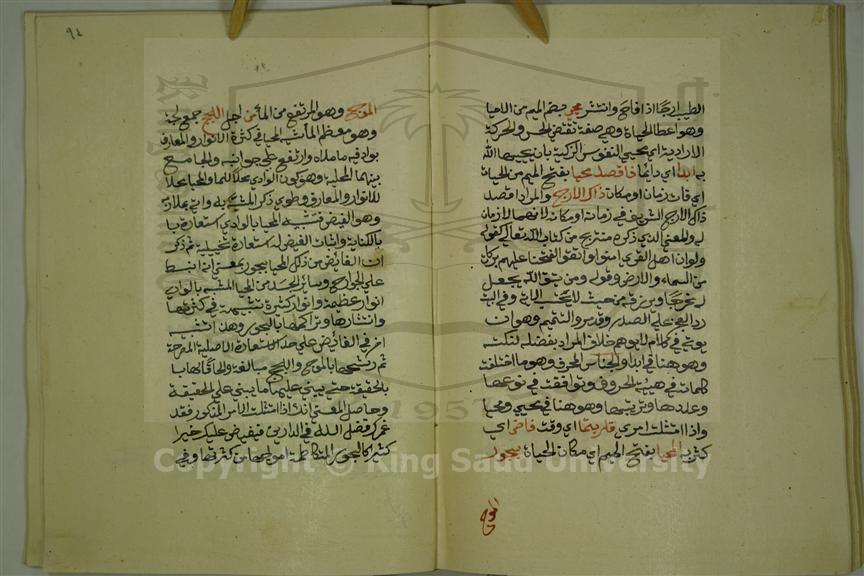 الطيب ارجا اذا فاح وانتشر محي بضم الميم من الاحيا
وهو اعطا الحياة وهي صفة تقتضي الحس والحركة
الارادية اي يحيي النفوس الزكية بان يحييها الله
به ابدا اي دائما فاقصد محيا بفتح الميم من الحياة
اي فات زمان او مكان ذاك الاريج والمراد اقصد
ذاك الارج الشريف في زمانه او مكانه لانهما لازمان
له والمعنى الذي ذكره منتزع من كتاب الله تعالى كقوله
ولو ان اهل القرى امنوا واتقوا لفتحنا عليهم بركات
من السماء والارض وقوله ومن يتق الله يجعل
له مخرجا ويرزقه من حيث لا يحتسب وفي البيت
رد العجز على الصدر والتتميم وهو ان
يوتى في كلام لا يوهم خلاف المراد بفضلة لنكتة
وهو هنا في ابدا والجناس المحرف وهو ما اختلفت
كلماته في هيئة الحروف وتوافقت في نوعها
وعددها وترتيبها وهو هنا في محيي ومحيا
واذا امتثلت امري فلربتما اي وقت فاض اي
كثر به المحيا بفتح الميم اي مكان الحياة ببحور
الموج
٩٤
الموج وهو المرتفع من الماء من اجل اللجج جمع لجة
وهو معظم الماء شبه المحيا في كثرة الانوار والمعارف
بواد فيه ما ملاه وارتفع على جوانبه والجامع
بينهما المحلية وهو كون الوادي محلا للماء والمحيا محلا
للانوار والمعارف وطوى ذكر المشبه به واتى بملازمه
وهو الفيض فتشبيه المحيا بالوادي استعارة
بالكناية واثبات الفيض له استعارة تخييلية ثم ذكر
ان الفائض من ذلك المحيا بحور بمعنى انه انبسط
على الجوارح وسائر الجسد من المحيا المشبه بالوادي
انوار عظيمة وانوار كثيرة شبيهة في كثرتها
وانتشارها وتراكمها بالبحور وهذا تشبيه
اخر في الفائض على حد الاستعارة الاصلية المصرحة
ثم رشحها بالموج واللجج مبالغة والحاقا لها
بالحقيقة حتى يبنى عليها ما يبنى على الحقيقة
وحاصل المعنى انك اذا امتثلت الامر المذكور فقد
غمرك فضل الله في الدارين فيفيض عليك خيرا
كثيرا كالبحور المتلاطمة امواجها من كثرتها وفي
Copyright © King Saud University
1957